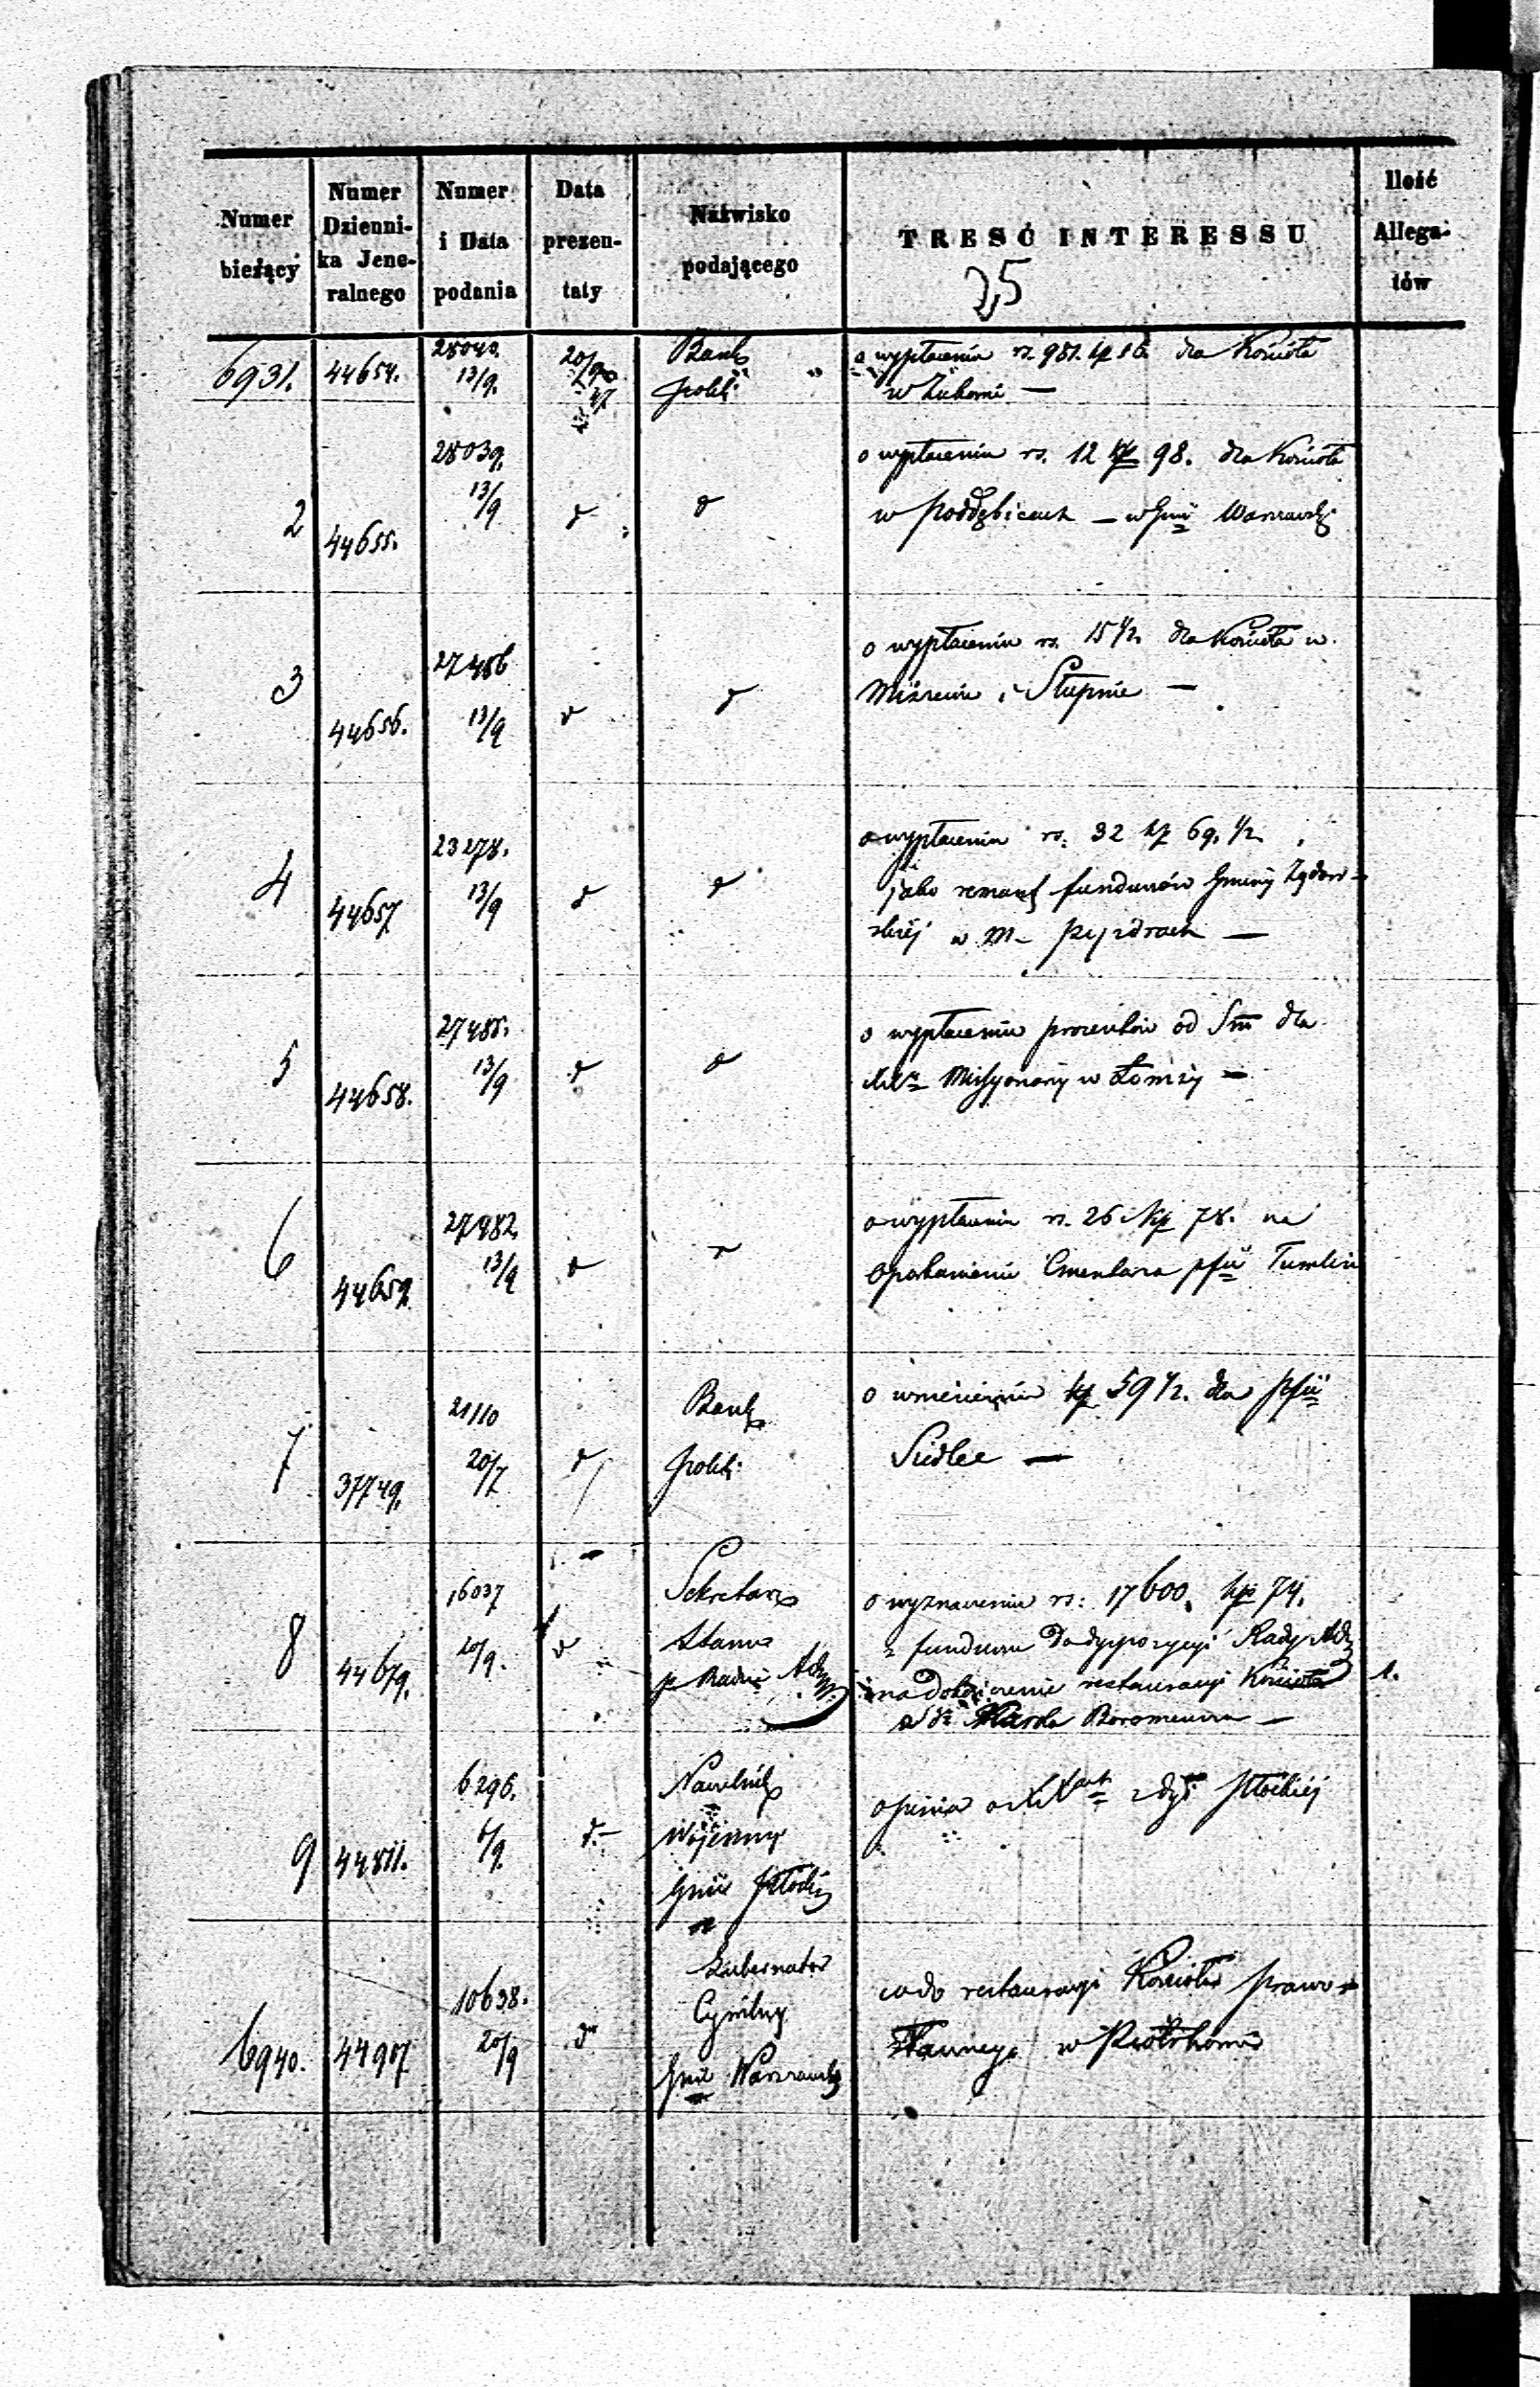 Numer bieżący
Numer Dzienni- ka Jene- ralnego
Numer i Data podania
Data prezen- taty
Nazwisko podającego
TREŚĆ INTERESSU
Ilość Allega- tów
25
6931. 44654. 28040. 13/9. 20/9 Bank Polski o wypłaceniu rs. 951. kp 16 dla Kościoła
w —
2 44655. 28039. 13/9 d d o wypłaceniu rs. 12 kp 98. dla Kościoła
w Poddębicach — w Gnii Warszawsk
3 44656. 27486 13/9 d d o wypłaceniu rs. 15 1/2 dla Kościoła w
i Słupnie —
4 44657 23278. 13/9 d d o wypłaceniu rs. 32 kp 69. 1/2
jako funduszów Gminy Żydow-
skiej w M. Pyzdrach —
5 44658. 27485. 13/9 d d o wypłaceniu procentów od Sm dla
Missyonarzy w Łomży —
6 44659. 27982. 13/9 d d o wypłaceniu rs. 26 kp 78. na
oparkanienie Cmentarza pfii Tumlin
7 37749. 21110 20/7 d Bank Polski o wniesieniu kp 59 1/2. dla Pfii
Siedlce —
8 44679. 16037 20/9. d Sekretarz Stanu p. Radzie Adm o wyznaczeniu rs: 17600. kp 74.
z funduszu Rady Adm
na restauracyi Kościoła 1.
S. Karola Boromeusza —
9 44811. 6296. 6/9. d.— Naczelnik Wojenny Gnii Płocki opinia o XX z dyi Płockiej
6940. 44907 10638. 20/9 d Gubernator Cywilny Gnii Warszawsk co do restauracyi Kościoła prawo-
sławnego w Piotrkowie